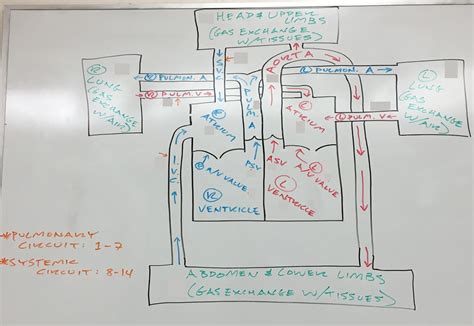 HEAD & UPPER
LIMBS
(GAS EXCHANGE
W/TISSUES)
R
LUNG
(GAS
EXCHANGE
W/AIR)
R PULMON. A
R PULM. V
S.V.C.
PULM. A
AORTA
L PULMON. A
L PULM. V
L
LUNG
(GAS
EXCHANGE
W/AIR)
R
ATRIUM
L
ATRIUM
I.V.C.
R A/V VALVE
ASV
ASV
L A/V VALVE
R
VENTRICLE
L
VENTRICLE
*PULMONARY
CIRCUIT: 1-7
*SYSTEMIC
CIRCUIT: 8-14
ABDOMEN & LOWER LIMBS
(GAS EXCHANGE W/TISSUES)